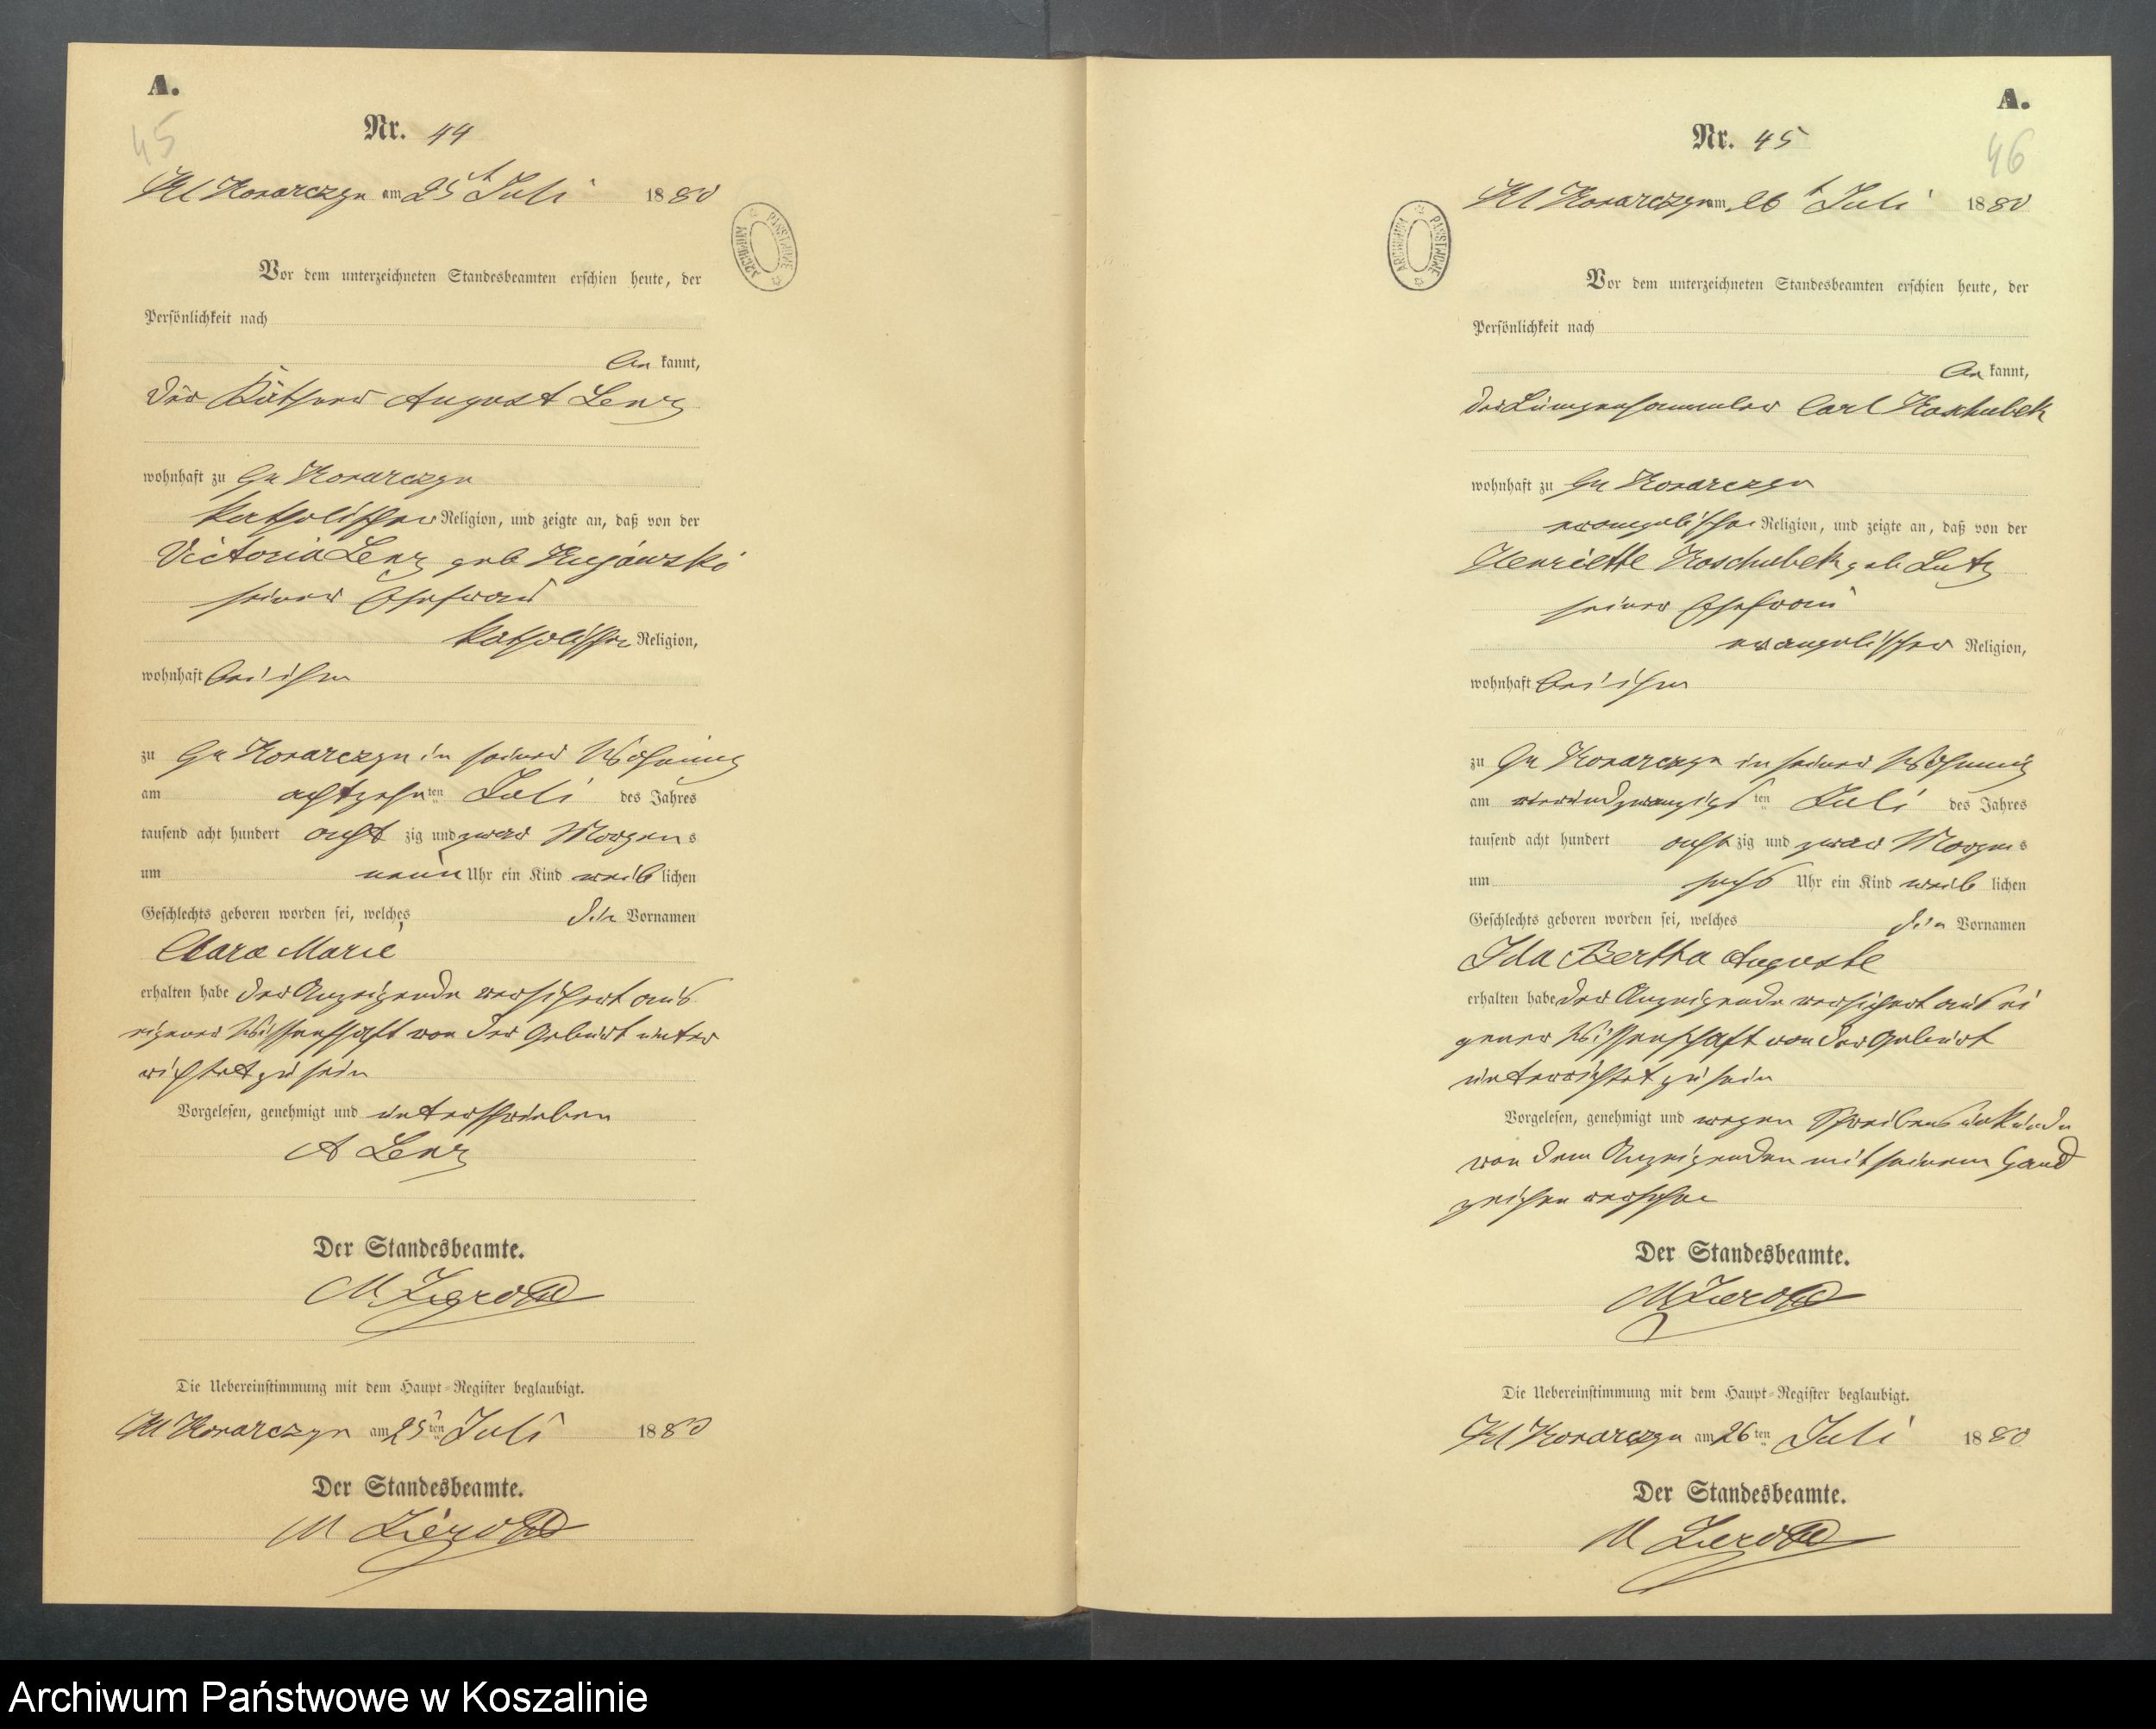 A.
45
Nr. 44
Kl Konarczyn am 25t Juli 1880
ARCHIWUM PAŃSTWOWE
Vor dem unterzeichneten Standesbeamten erschien heute, der
Persönlichkeit nach
be kannt,
der Käthner August Lenz
wohnhaft zu Gr Konarczyn
katholischer Religion, und zeigte an, daß von der
Victoria Lenz geb Kujawski
seiner Ehefrau
katholischer Religion,
wohnhaft bei ihm
zu Gr Konarczyn in seiner Wohnung
am achtzehn ten Juli des Jahres
tausend acht hundert acht zig und zwar Morgen s
um neun Uhr ein Kind weib lichen
Geschlechts geboren worden sei, welches die Vornamen
Clara Marie
erhalten habe der Anzeigende versichert aus
eigener Wissenschaft von der Geburt unter
richtet zu sein
Vorgelesen, genehmigt und unterschrieben
A Lenz
Der Standesbeamte.
M Zierold
Die Uebereinstimmung mit dem Haupt-Register beglaubigt.
Kl Konarczyn am 25 ten Juli 1880
Der Standesbeamte.
M Zierold
A.
46
Nr. 45
Kl Konarczyn am 26t Juli 1880
ARCHIWUM PAŃSTWOWE
Vor dem unterzeichneten Standesbeamten erschien heute, der
Persönlichkeit nach
be kannt,
der Lumpensammler Carl Koschubek
wohnhaft zu Gr Konarczyn
evangelischer Religion, und zeigte an, daß von der
Henriette Koschubek geb Lutz
seiner Ehefrau
evangelischer Religion,
wohnhaft bei ihm
zu Gr Konarczyn in seiner Wohnung
am vierundzwanzigs ten Juli des Jahres
tausend acht hundert acht zig und zwar Morgen s
um sechs Uhr ein Kind weib lichen
Geschlechts geboren worden sei, welches die Vornamen
Ida Bertha Auguste
erhalten habe der Anzeigende versichert aus ei
gener Wissenschaft von der Geburt
unterrichtet zu sein
Vorgelesen, genehmigt und wegen Schreibensunkunde
von dem Anzeigenden mit seinem Hand
zeichen versehen
Der Standesbeamte.
M Zierold
Die Uebereinstimmung mit dem Haupt-Register beglaubigt.
Kl Konarczyn am 26 ten Juli 1880
Der Standesbeamte.
M Zierold
Archiwum Państwowe w Koszalinie